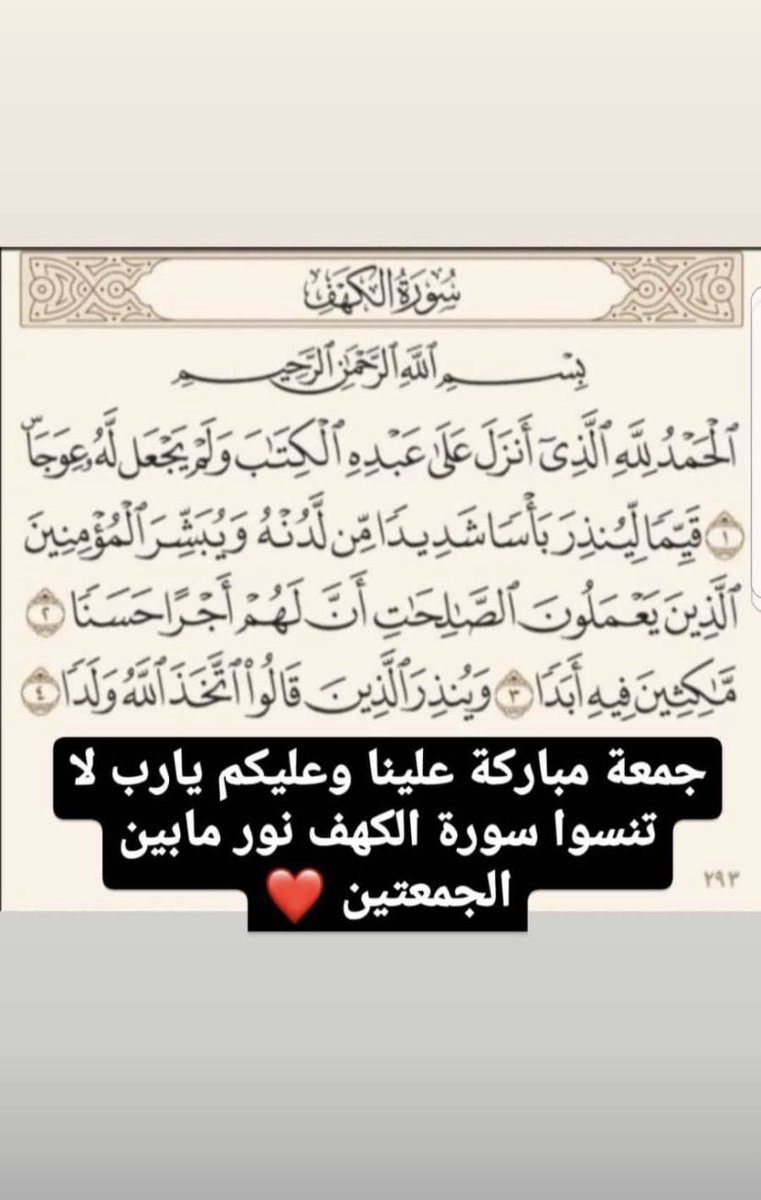 سُورَةُ الكَهْفِ
بِسْمِ ٱللَّهِ ٱلرَّحْمَٰنِ ٱلرَّحِيمِ
ٱلْحَمْدُ لِلَّهِ ٱلَّذِىٓ أَنزَلَ عَلَىٰ عَبْدِهِ ٱلْكِتَٰبَ وَلَمْ يَجْعَل لَّهُۥ عِوَجَاۜ
١ قَيِّمًا لِّيُنذِرَ بَأْسًا شَدِيدًا مِّن لَّدُنْهُ وَيُبَشِّرَ ٱلْمُؤْمِنِينَ
ٱلَّذِينَ يَعْمَلُونَ ٱلصَّٰلِحَٰتِ أَنَّ لَهُمْ أَجْرًا حَسَنًا ٢
مَّٰكِثِينَ فِيهِ أَبَدًا ٣ وَيُنذِرَ ٱلَّذِينَ قَالُوا۟ ٱتَّخَذَ ٱللَّهُ وَلَدًا ٤
جمعة مباركة علينا وعليكم يارب لا
تنسوا سورة الكهف نور مابين
الجمعتين ❤️
٢٩٣